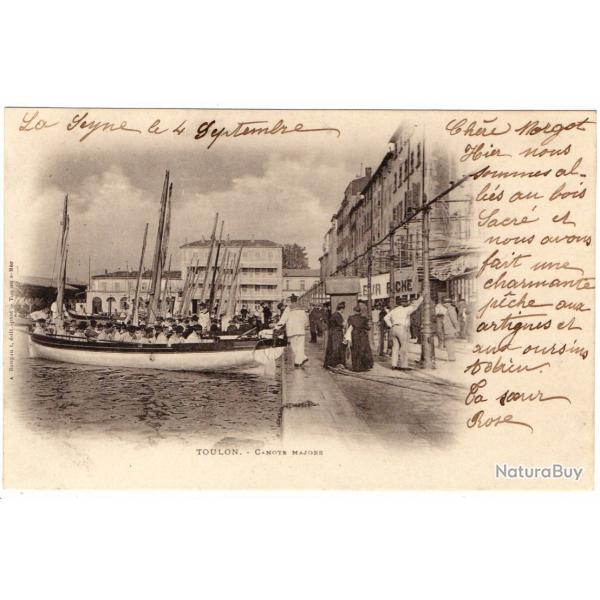 La Seyne le 4 Septembre
Chère Margot
Hier nous
sommes al-
lés au bois
Sacré et
nous avons
fait une
charmante
pêche aux
artignes et
aux oursins
Adrien
Ta sœur
Rose
RICHE
A. Bougault, édit.
TOULON. - CANOTS MAJORS
NaturaBuy